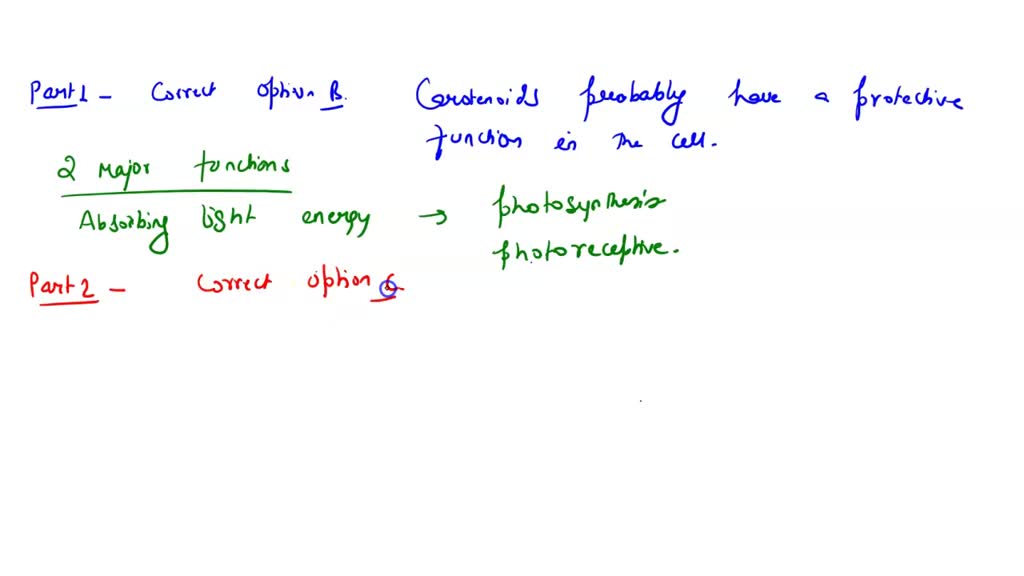 Part 1 - Correct option B. Carotenoids probably have a protective
function in the cell.
2 Major functions
Absorbing light energy → photosynthesis
photoreceptive.
Part 2 - Correct option